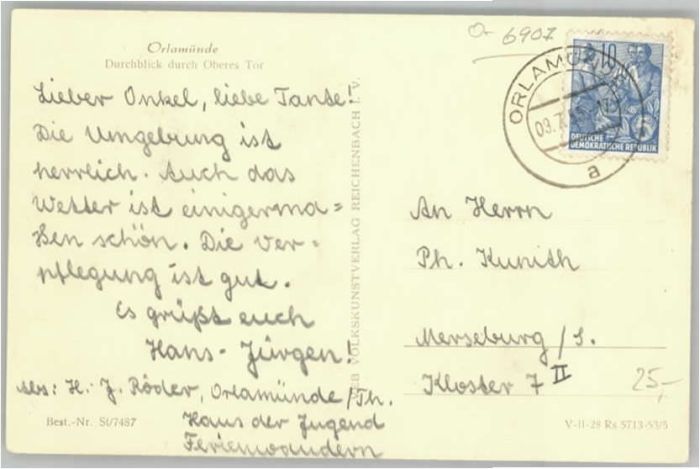 Orlamünde
Durchblick durch Oberes Tor
Lieber Onkel, liebe Tante!
Die Umgebung ist
herrlich. Auch das
Wetter ist einigerma=
ßen schön. Die Ver-
pflegung ist gut.
Es grüßt euch
Hans-Jürgen!
Abs: H.-J. Röder, Orlamünde/Th.
Haus der Jugend
Ferienwandern
Best.-Nr. St/7487
VEB VOLKSKUNSTVERLAG REICHENBACH I. V.
6907
ORLAMÜNDE
03.7.
a
10
DEUTSCHE
DEMOKRATISCHE REPUBLIK
An Herrn
Ph. Kunith
Merseburg/S.
Kloster 7 II
25,-
V-II-28 Rs 5713-53/5